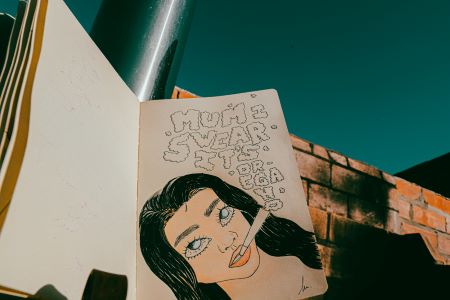 MUM I
SWEAR
IT'S
OR-
EGA
NO